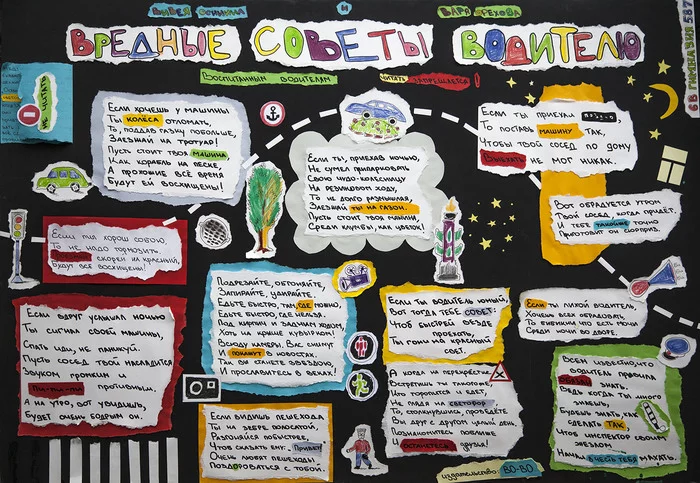 Вивея Оснкина и Варя Грехова
ВРЕДНЫЕ СОВЕТЫ ВОДИТЕЛЮ
Воспитанным водителям читать запрещается!
НЕ ЧИТАТЬ
ГИМНАЗИЯ 587
Если хочешь у машины
Ты колёса отломать,
То, поддав газку побольше,
Заезжай на тротуар!
Пусть стоит твоя машина
Как корабль на песке,
А прохожие всё время
Будут ей восхищены!
Если ты, приехав ночью,
Не сумел припарковать
Свою чудо-колесницу
На резиновом ходу,
То не долго размышляя,
Заезжай ты на газон.
Пусть стоит твоя машина,
Среди клумбы, как цветок!
Если ты приехал поздно,
То поставь машину так,
Чтобы твой сосед по дому
Выехать не мог никак.
Вот обрадуется утром
Твой сосед, когда придёт,
И тебе такой же точно
Приготовит он сюрприз.
Если ты хорош собою,
То не надо тормозить.
скорей на красный,
Будут все восхищены!
Если вдруг услышал ночью
Ты сигнал своей машины,
Спать иди, не паникуй.
Пусть сосед твой насладится
Звуком громким и
Пи-пи-пи противным.
А на утро, вот увидишь,
Будет очень бодрым он.
Подрезайте, обгоняйте,
Запирайте, удирайте.
Едьте быстро, там, где можно,
Едьте быстро, где нельзя.
Под кирпич и задним ходом,
Хоть на крыше кувырком!
Всюду камеры, вас снимут
И покажут в новостях.
И вы станете звездою,
И прославитесь в веках!
Если видишь пешехода
Ты на зебре полосатой,
Разгоняйся побыстрее,
Чтоб сказать ему: "Привет"
Очень любят пешеходы
Поздороваться с тобой.
Если ты водитель юный,
Вот тогда тебе совет:
Чтоб быстрей везде
проехать,
Ты гони на красный
свет.
А когда на перекрёстке
Встретишь ты такого же,
Кто торопится и едет,
Не глядя на светофор,
То, столкнувшись, проведёте
Вы друг с другом целый день,
Познакомитесь поближе
И останетесь друзья!
Если ты лихой водитель,
Хочешь всех обрадовать,
То бибикни что есть мочи
Среди ночи во дворе.
Всем известно, что
водитель правила
обязан знать.
Ведь когда ты много
знаешь,
Будешь знать, как
сделать так,
Чтоб инспектор своим
жезлом
Начал в честь тебя махать.
издательство: ВО-ВО